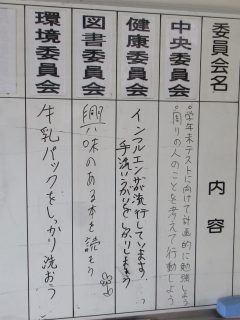 委員会名
内容
中央委員会
。学年末テストに向けて計画的に勉強しよう
。周りの人のことを考えて行動しよう
健康委員会
インフルエンザが流行しています!
手洗いうがいをしっかりしましょう
図書委員会
興味のある本を読もう
環境委員会
牛乳パックをしっかり洗おう